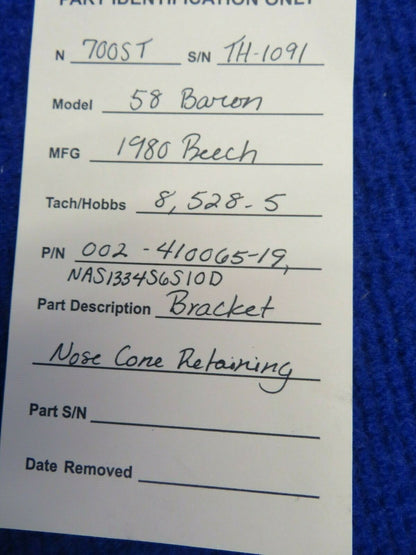 PART IDENTIFICATION ONLY
N 700ST S/N TH-1091
Model 58 Baron
MFG 1980 Beech
Tach/Hobbs 8,528.5
P/N 002-410065-19,
NAS1334S6S10D
Part Description Bracket
Nose Cone Retaining
Part S/N
Date Removed